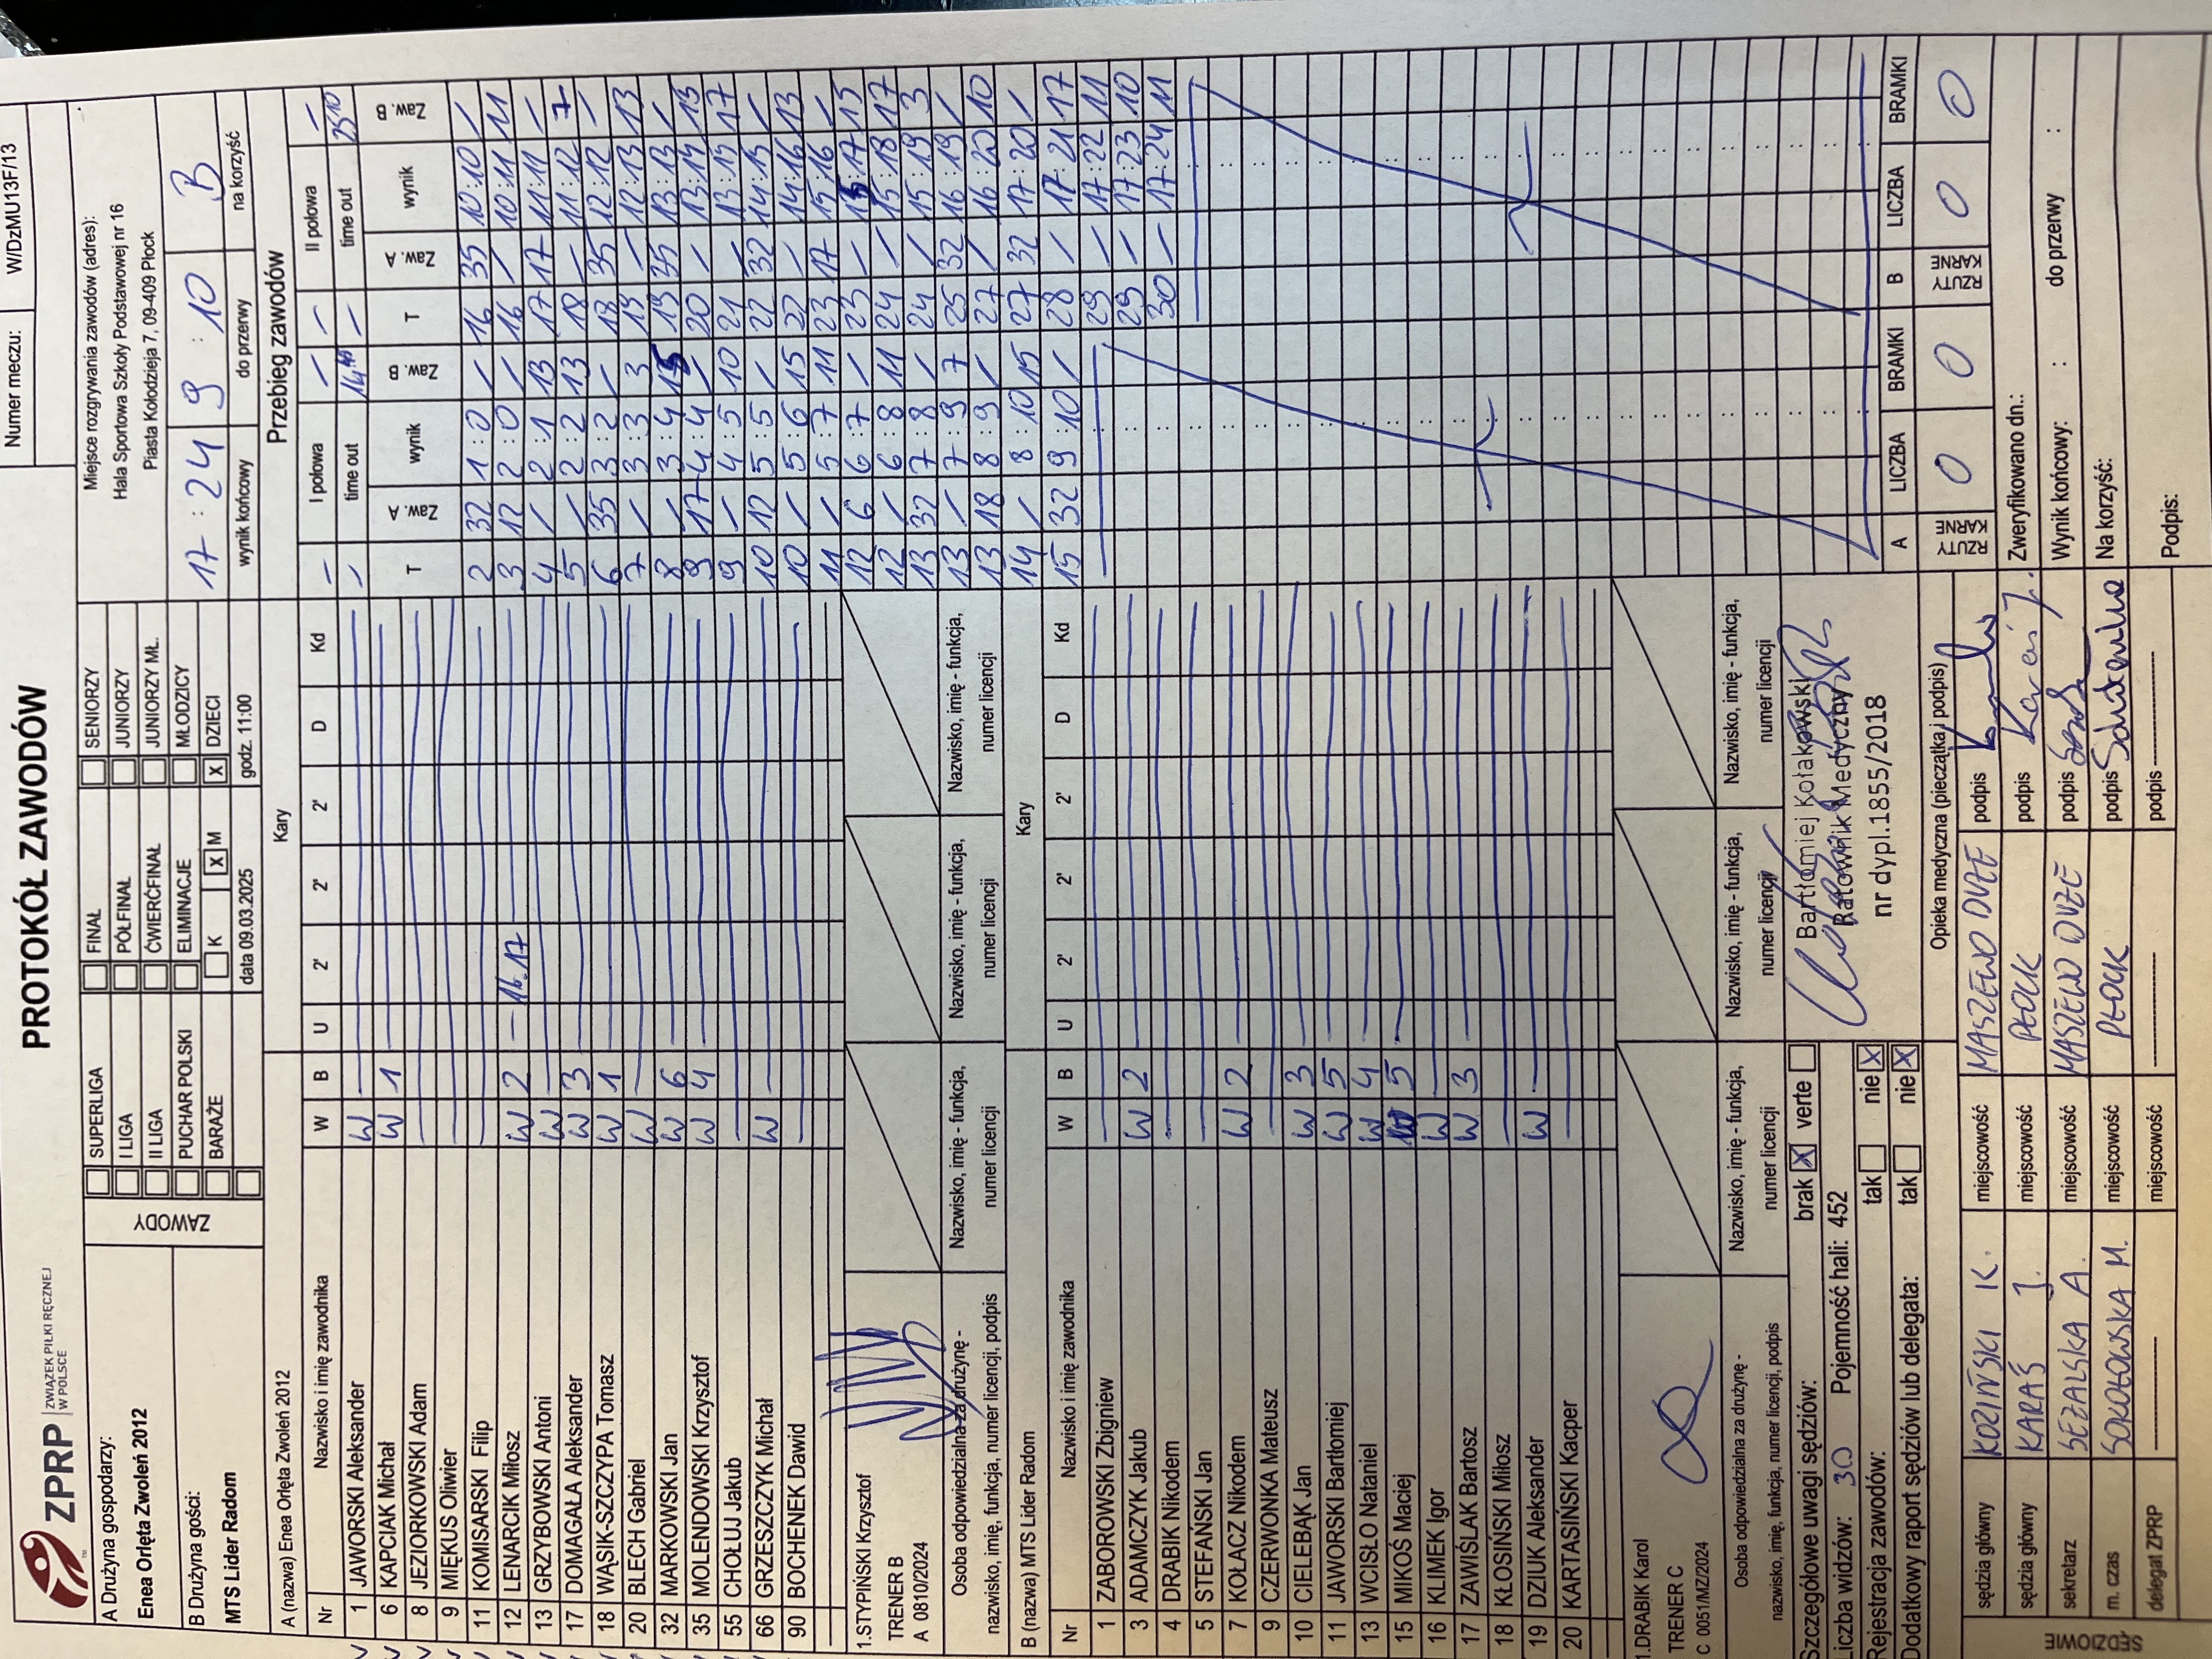 ZPRP ZWIĄZEK PIŁKI RĘCZNEJ W POLSCE
PROTOKÓŁ ZAWODÓW
Numer meczu: W/DzMU13F/13
A Drużyna gospodarzy:
Enea Orlęta Zwoleń 2012
B Drużyna gości:
MTS Lider Radom
ZAWODY
SUPERLIGA FINAŁ SENIORZY
I LIGA PÓŁFINAŁ JUNIORZY
II LIGA ĆWIERĆFINAŁ JUNIORZY MŁ.
PUCHAR POLSKI ELIMINACJE MŁODZICY
BARAŻE K X M X DZIECI
data 09.03.2025 godz. 11:00
Miejsce rozgrywania zawodów (adres):
Hala Sportowa Szkoły Podstawowej nr 16
Piasta Kołodzieja 7, 09-409 Płock
17 : 24 9 : 10 B
wynik końcowy do przerwy na korzyść
A (nazwa) Enea Orlęta Zwoleń 2012 Kary
Nr Nazwisko i imię zawodnika W B U 2' 2' 2' D Kd
1 JAWORSKI Aleksander W
6 KAPCIAK Michał W 1
8 JEZIORKOWSKI Adam
9 MIĘKUS Oliwier
11 KOMISARSKI Filip
12 LENARCIK Miłosz W 2 16.17
13 GRZYBOWSKI Antoni W
17 DOMAGAŁA Aleksander W 3
18 WĄSIK-SZCZYPA Tomasz W 1
20 BLECH Gabriel W
32 MARKOWSKI Jan W 6
35 MOLENDOWSKI Krzysztof W 4
55 CHOŁUJ Jakub
66 GRZESZCZYK Michał W
90 BOCHENEK Dawid
1.STYPIŃSKI Krzysztof
TRENER B
A 0810/2024
Osoba odpowiedzialna za drużynę - Nazwisko, imię - funkcja, Nazwisko, imię - funkcja, Nazwisko, imię - funkcja,
nazwisko, imię, funkcja, numer licencji, podpis numer licencji numer licencji numer licencji
B (nazwa) MTS Lider Radom Kary
Nr Nazwisko i imię zawodnika W B U 2' 2' 2' D Kd
1 ZABOROWSKI Zbigniew
3 ADAMCZYK Jakub W 2
4 DRABIK Nikodem
5 STEFAŃSKI Jan
7 KOŁACZ Nikodem W 2
9 CZERWONKA Mateusz
10 CIELEBĄK Jan W 3
11 JAWORSKI Bartłomiej W 5
13 WCISŁO Nataniel W 4
15 MIKOŚ Maciej W 5
16 KLIMEK Igor W
17 ZAWIŚLAK Bartosz W 3
18 KŁOSIŃSKI Miłosz
19 DZIUK Aleksander W
20 KARTASIŃSKI Kacper
1.DRABIK Karol
TRENER C
C 0051/MZ/2024
Osoba odpowiedzialna za drużynę - Nazwisko, imię - funkcja, Nazwisko, imię - funkcja, Nazwisko, imię - funkcja,
nazwisko, imię, funkcja, numer licencji, podpis numer licencji numer licencji numer licencji
Szczegółowe uwagi sędziów: brak X verte
Liczba widzów: 30 Pojemność hali: 452
Rejestracja zawodów: tak nie X
Dodatkowy raport sędziów lub delegata: tak nie X
Bartłomiej Kołakowski
Ratownik Medyczny
nr dypl.1855/2018
Opieka medyczna (pieczątka i podpis)
SĘDZIOWIE
sędzia główny KOZIŃSKI K. miejscowość MASZEWO DUŻE podpis
sędzia główny KARAŚ J. miejscowość PŁOCK podpis Karaś J.
sekretarz SEZALSKA A. miejscowość MASZEWO DUŻE podpis
m. czas SOKOŁOWSKA M. miejscowość PŁOCK podpis
delegat ZPRP miejscowość podpis
Przebieg zawodów
I połowa II połowa
time out 14:41 time out 25:10
T Zaw. A wynik Zaw. B T Zaw. A wynik Zaw. B
2 32 1 : 0 / 16 35 10 : 10 /
3 12 2 : 0 / 16 / 10 : 11 11
4 / 2 : 1 13 17 17 11 : 11 /
5 / 2 : 2 13 18 / 11 : 12 7
6 35 3 : 2 / 18 35 12 : 12 /
7 / 3 : 3 3 19 / 12 : 13 13
8 / 3 : 4 15 19 35 13 : 13 /
9 17 4 : 4 / 20 / 13 : 14 13
9 / 4 : 5 10 21 / 13 : 15 17
10 12 5 : 5 / 22 32 14 : 15 /
10 / 5 : 6 15 22 / 14 : 16 13
11 / 5 : 7 11 23 17 15 : 16 /
12 6 6 : 7 / 23 / 15 : 17 15
12 / 6 : 8 11 24 / 15 : 18 17
13 32 7 : 8 / 24 / 15 : 19 3
13 / 7 : 9 7 25 32 16 : 19 /
13 18 8 : 9 / 27 / 16 : 20 10
14 / 8 : 10 15 27 32 17 : 20 /
15 32 9 : 10 / 28 / 17 : 21 17
29 / 17 : 22 11
29 / 17 : 23 10
30 / 17 : 24 11
A LICZBA BRAMKI B LICZBA BRAMKI
RZUTY KARNE 0 0 RZUTY KARNE 0 0
Zweryfikowano dn.:
Wynik końcowy: : do przerwy :
Na korzyść:
Podpis: